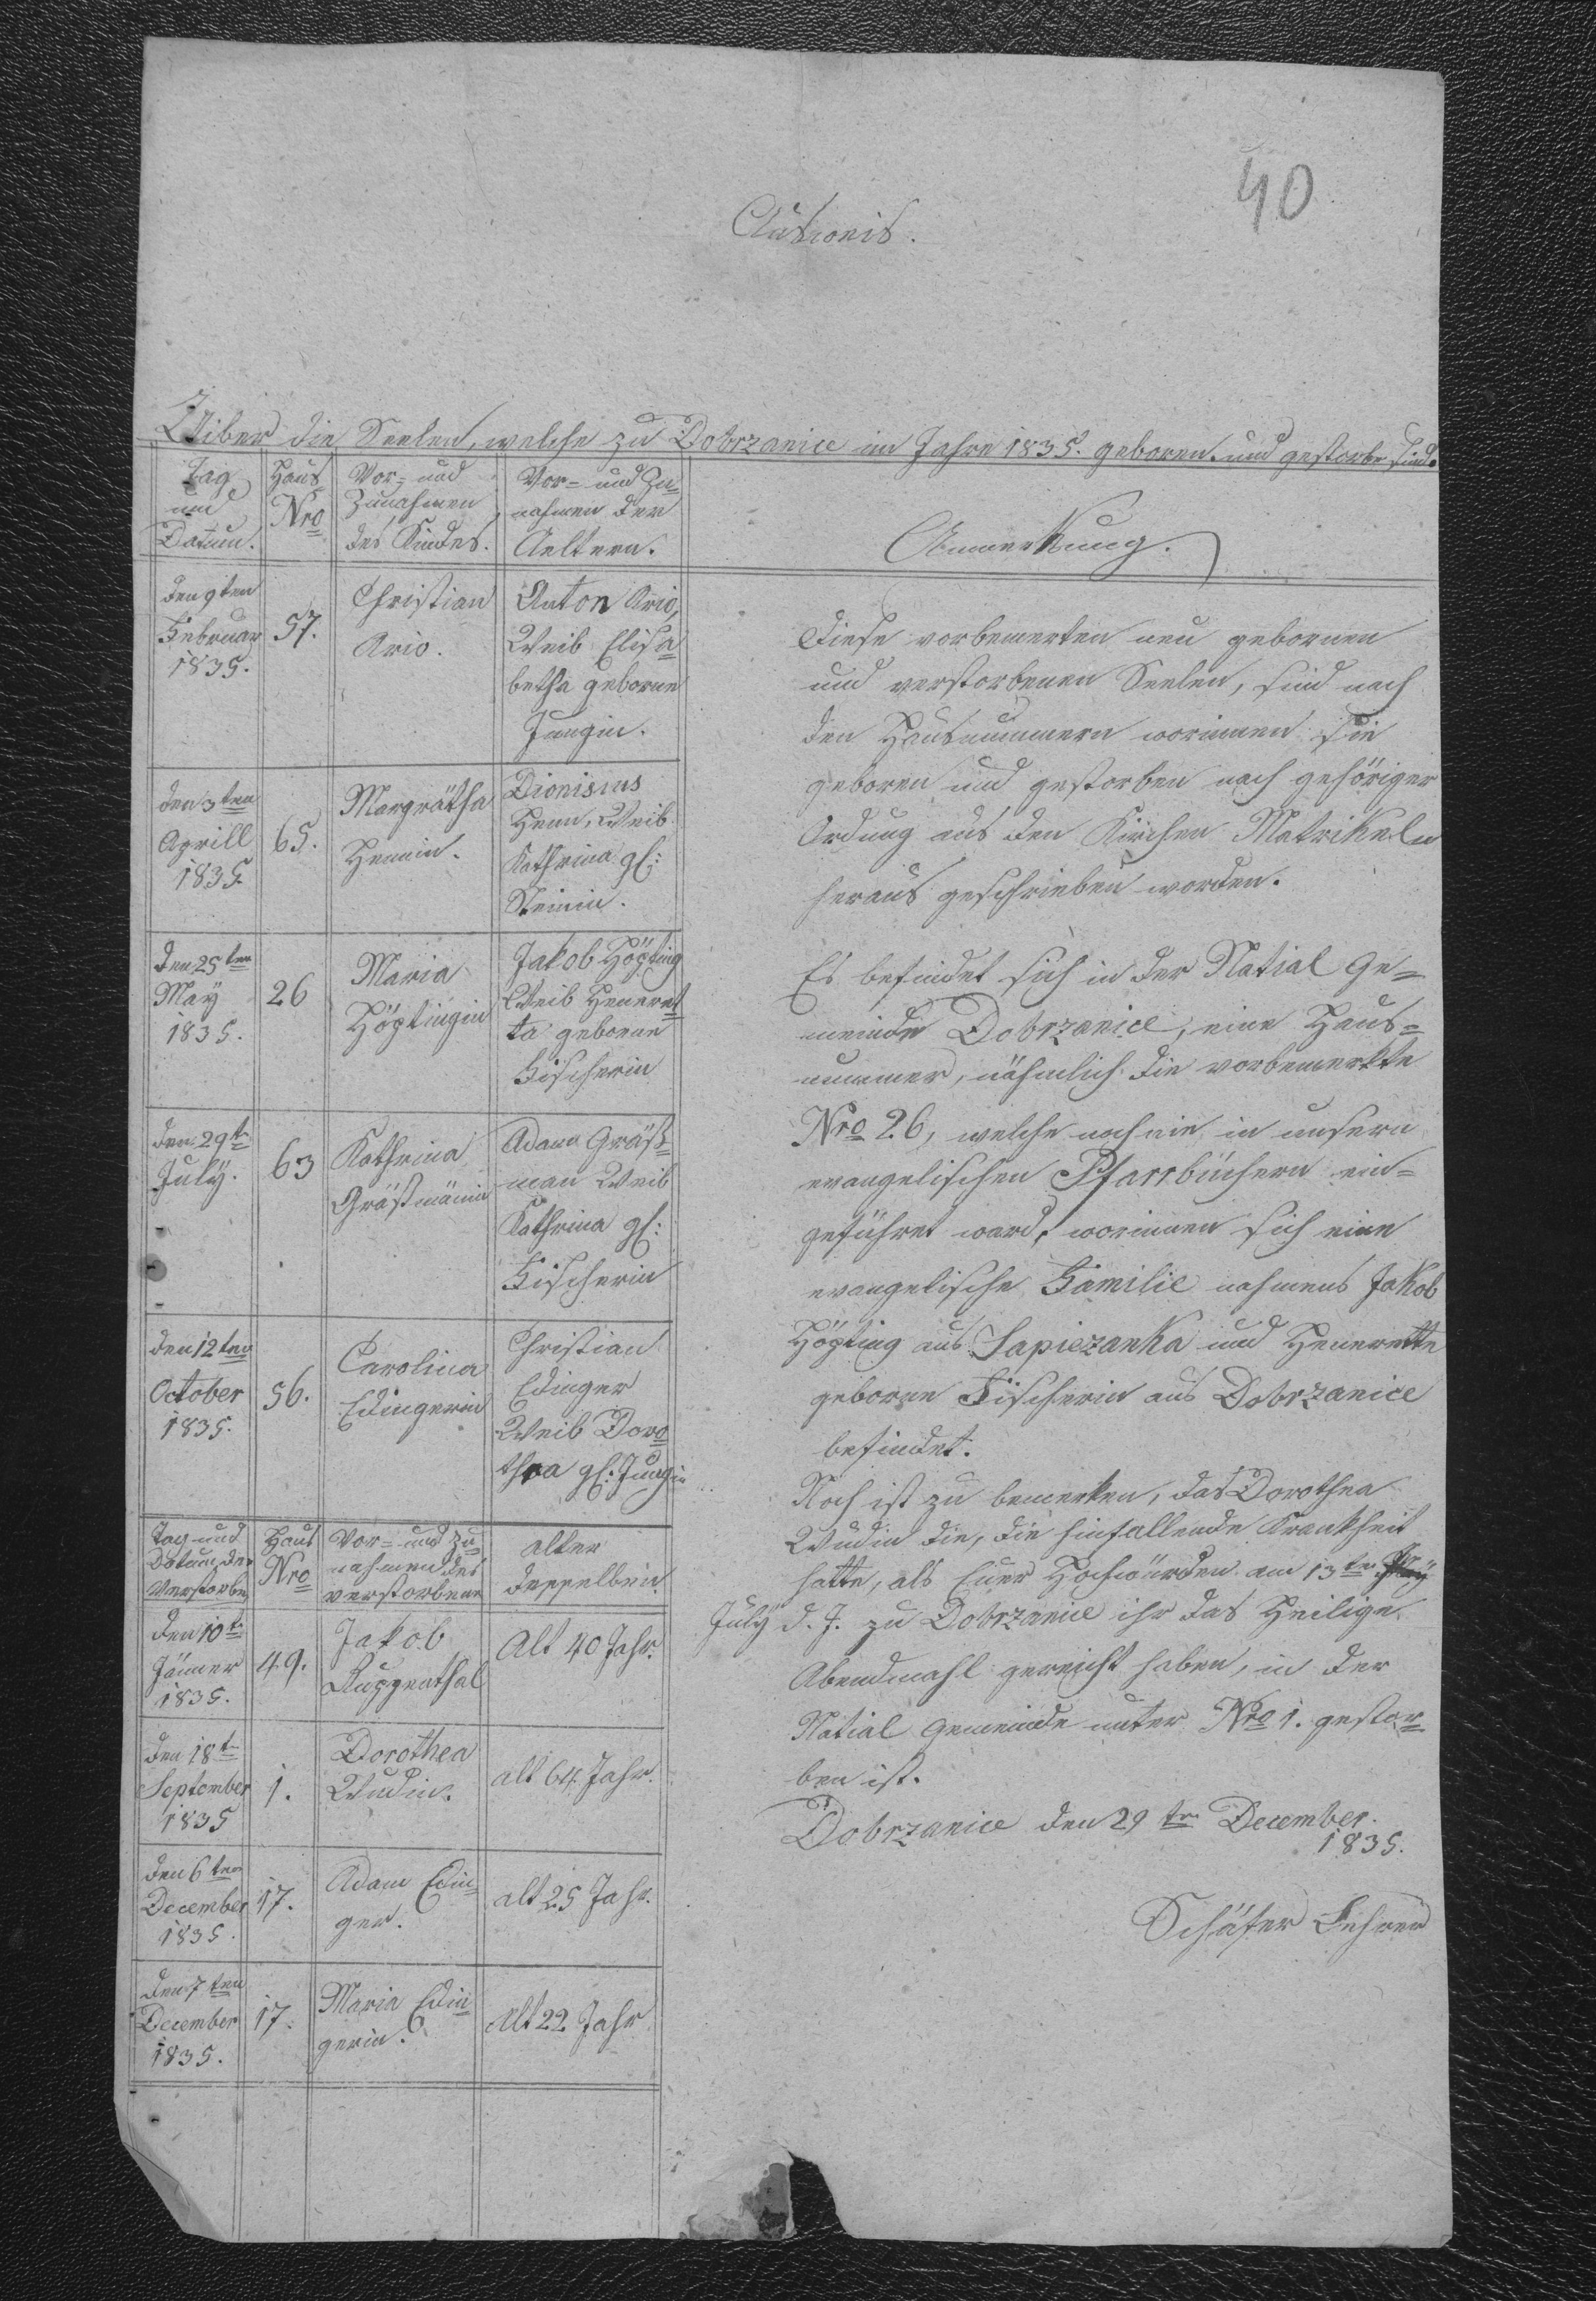 40
Ausweis.
Uiber die Seelen, welche zu Dobrzanice im Jahre 1835. geboren und gestorbe sind.
Tag
und
Datum.
Haus
Nro
Vor- und
Zunahmen
des Kindes.
Vor- und Zu-
nahmen der
Aeltern.
Anmerkung.
den 9ten
Februar
1835.
57.
Christian
Ario.
Anton Ario,
Weib Elisa=
betha geborne
Jungin.
den 3ten
Aprill
1835
65.
Margrätha
Hennin.
Dionisius
Henn, Weib
Kathrina gb:
den 25ten
May
1835.
26
Maria
Höptingin
Jakob Höpting
Weib Heneret=
ta geborne
Fischerin
den 29t
July.
63
Kathrina
Gräßmänin
Adam Gräß=
man Weib
Kathrina gb:
Fischerin
den 12ten
October
1835.
56.
Carolina
Edingerin
Christian
Edinger
Weib Doro=
thea gb: Jungin
Tag und
Datum der
Verstorbe
Haus
Nro
Vor- und Zu=
nahmen des
verstorbene
alter
desselben.
den 10t
Jänner
1835.
49.
Jakob
Ruppenthal
Alt 40 Jahr.
den 18t
September
1835
1.
Dorothea
Wudin.
alt 64 Jahr.
den 6ten
December
1835.
17.
Adam Edin=
ger.
alt 25 Jahr.
den 7ten
December
1835.
17.
Maria Edin=
gerin.
Alt 22 Jahr
Diese vorbemerten neu gebornen
und verstorbenen Seelen, sind nach
den Hausnummern worinnen sie
geboren und gestorben nach gehöriger
Ordnung aus den Kirchen Matrikeln
heraus geschrieben worden.
Es befindet sich in der Natial Ge=
meinde Dobrzanice, eine Haus=
nummer, nähmlich die vorbemerkte
Nro 26, welche noch nie in unsern
evangelischen Pfarrbüchern ein=
geführet ward, worinnen sich eine
evangelische Familie nahmens Jakob
Höpting aus Sapiezanka und Henerette
geborne Fischerin aus Dobrzanice
befindet.
Noch ist zu bemerken, das Dorothea
Wudin die, die hinfallende Krankheit
hatte, als Euer Hochwürden am 13ten
July d. J. zu Dobrzanice ihr das Heilige
Abendmahl gereicht haben, in der
Natial Gemeinde unter Nro 1. gestor=
ben ist.
Dobrzanice den 29ten December.
1835.
Schäfer Lehrer